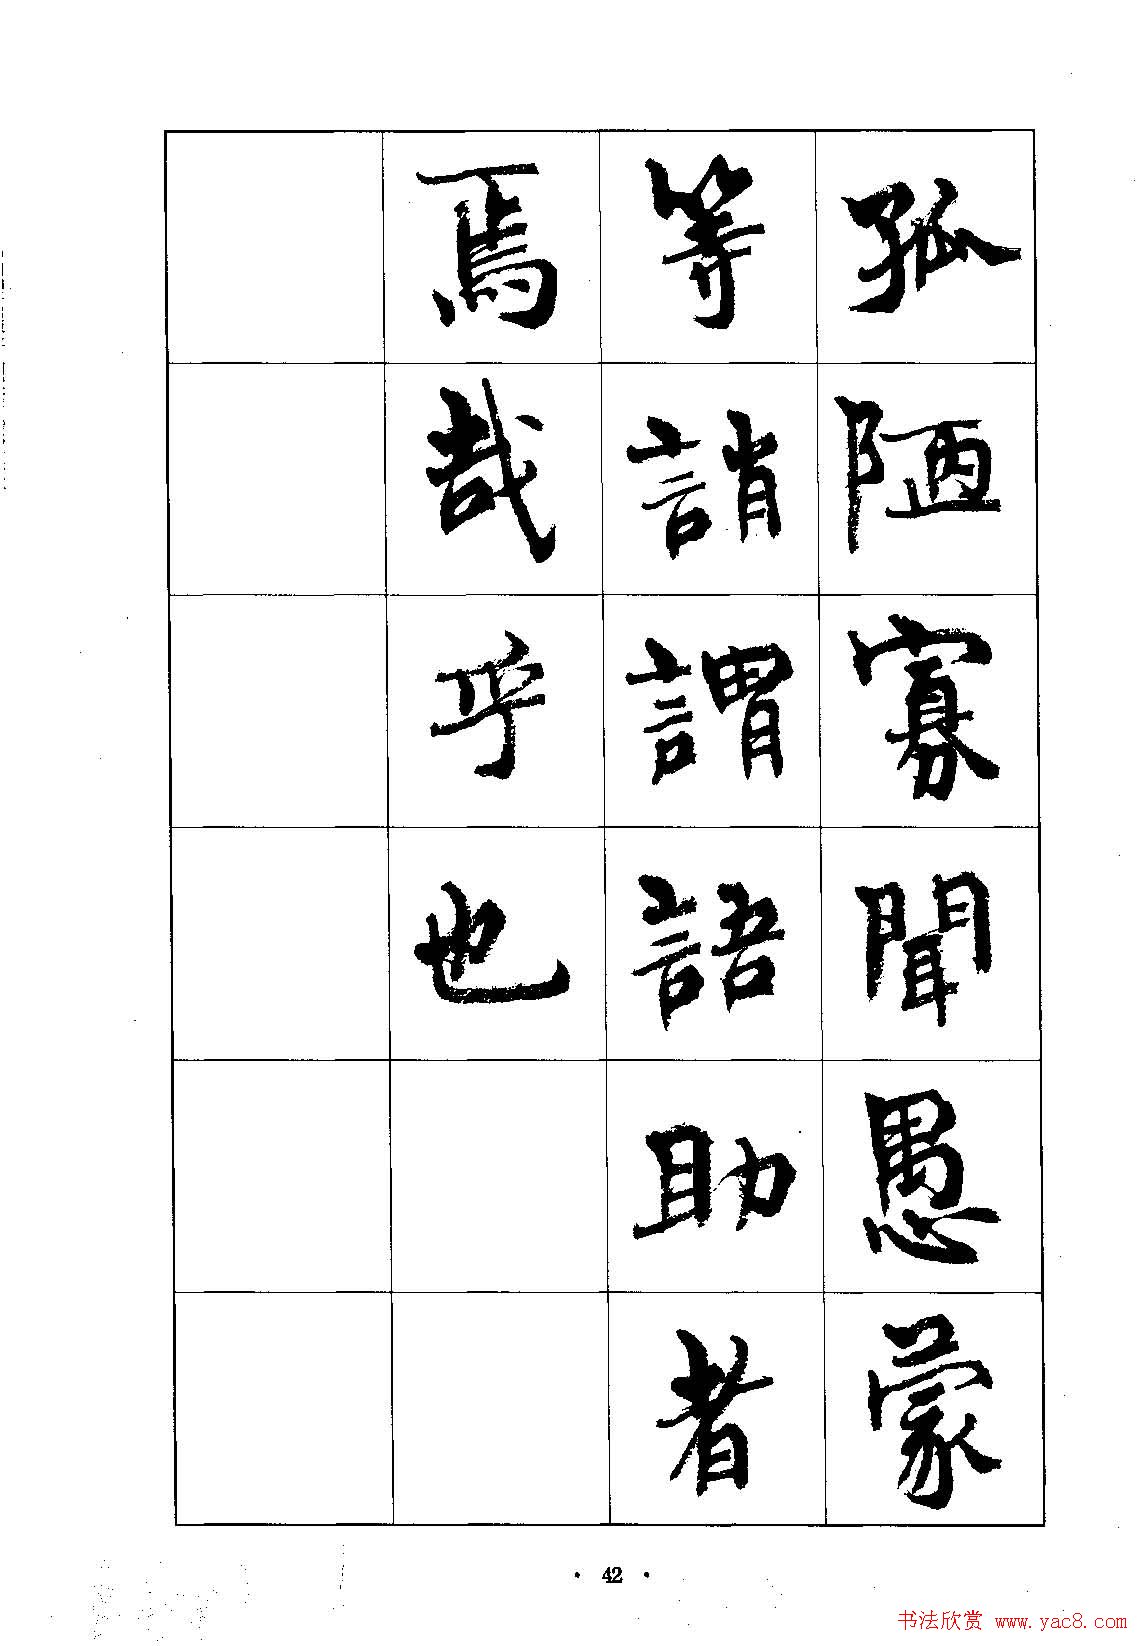 孤陋寡聞愚蒙
等誚謂語助者
焉哉乎也
· 42 ·
书法欣赏 www.yac8.com